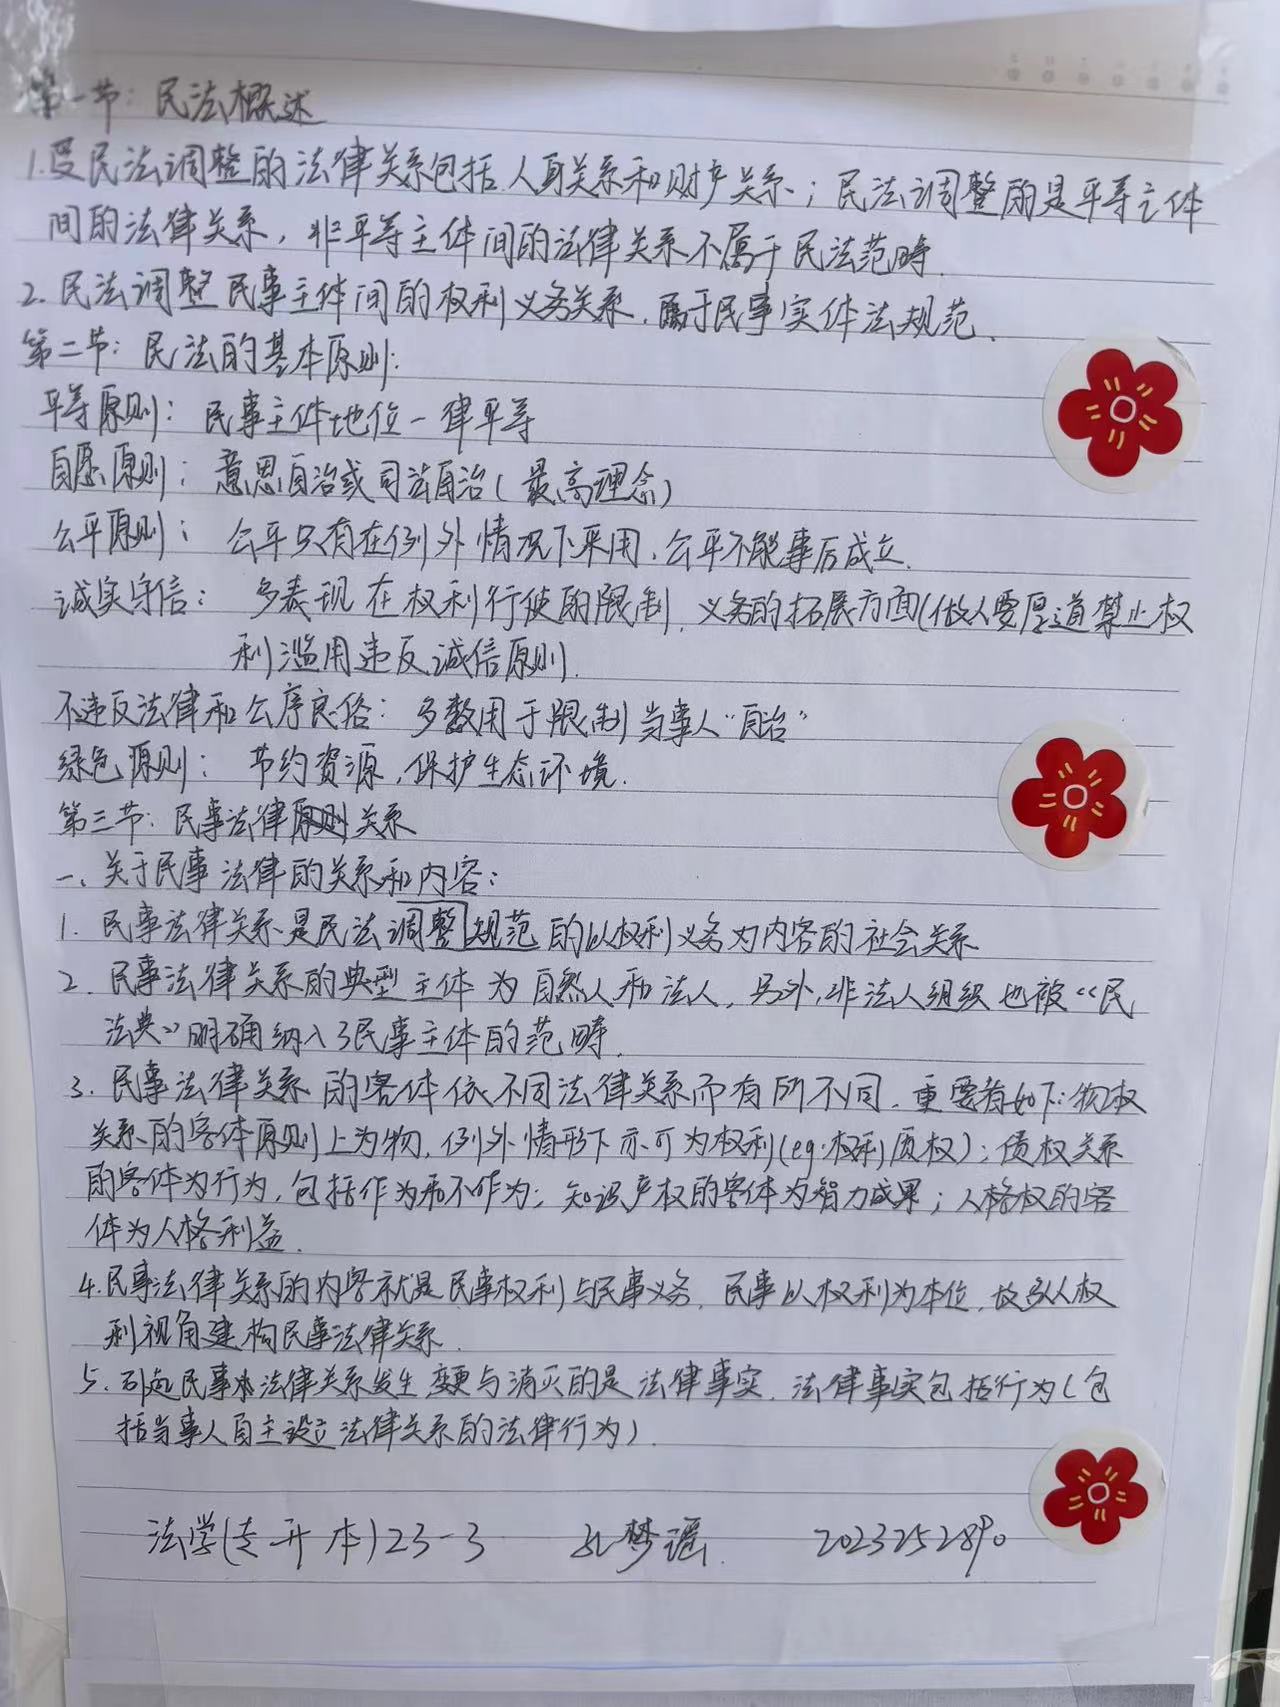 第一节：民法概述
1.受民法调整的法律关系包括人身关系和财产关系；民法调整的是平等主体
间的法律关系，非平等主体间的法律关系不属于民法范畴.
2.民法调整民事主体间的权利义务关系.属于民事实体法规范.
第二节：民法的基本原则：
平等原则：民事主体地位一律平等
自愿原则：意思自治或司法自治(最高理念)
公平原则：公平只有在例外情况下采用.公平不能事后成立.
诚实守信：多表现在权利行使的限制.义务的拓展方面(做人要厚道禁止权
利滥用违反诚信原则.
不违反法律和公序良俗：多数用于限制当事人“自治”
绿色原则：节约资源,保护生态环境.
第三节：民事法律原则关系
一、关于民事法律的关系和内容：
1. 民事法律关系是民法调整规范的以权利义务为内容的社会关系
2. 民事法律关系的典型主体为自然人和法人.另外,非法人组织也被《民
法典》明确纳入了民事主体的范畴.
3. 民事法律关系的客体依不同法律关系而有所不同.重要者如下:物权
关系的客体原则上为物,例外情形下亦可为权利(eg:权利质权)；债权关系
的客体为行为,包括作为和不作为；知识产权的客体为智力成果；人格权的客
体为人格利益.
4.民事法律关系的内容就是民事权利与民事义务.民事以权利为本位.故多从权
利视角建构民事法律关系.
5. 引起民事法律关系发生变更与消灭的是法律事实.法律事实包括行为(包
括当事人自主设立法律关系的法律行为).
法学(专升本)23-3 孔梦谣. 2023252890